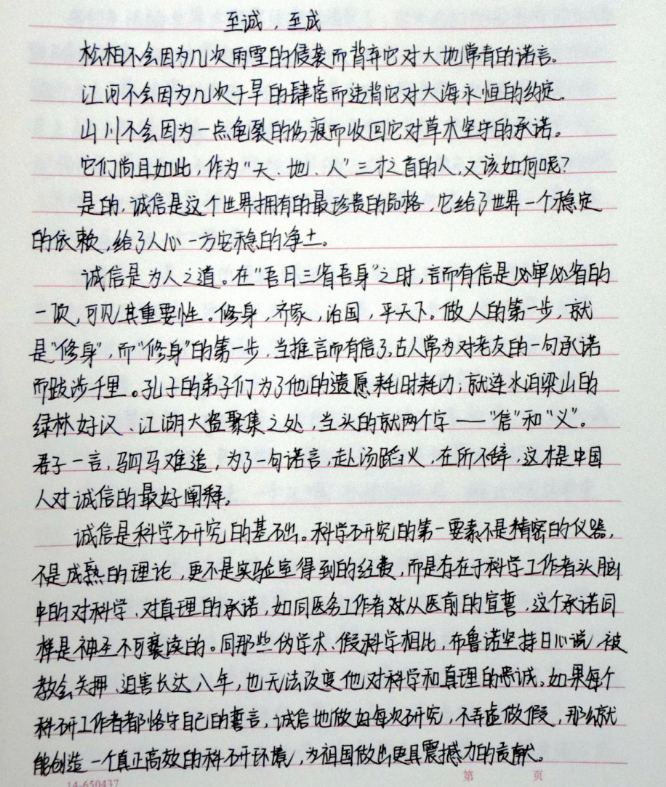 至诚，至成
松柏不会因为几次雨雪的侵袭而背弃它对大地常青的诺言。
江河不会因为几次干旱的肆虐而违背它对大海永恒的约定.
山川不会因为一点龟裂的伤痕而收回它对草木坚守的承诺。
它们尚且如此，作为“天、地、人”三才之首的人，又该如何呢？
是的，诚信是这个世界拥有的最珍贵的品格，它给了世界一个稳定
的依赖，给了人心一方安稳的净土。
诚信是为人之道。在“吾日三省吾身”之时，言而有信是必审必省的
一项，可见其重要性。修身，齐家，治国，平天下。做人的第一步，就
是“修身”，而“修身”的第一步，当推言而有信了，古人常为对老友的一句承诺
而跋涉千里。孔子的弟子们为了他的遗愿耗时耗力；就连水泊梁山的
绿林好汉、江湖大盗聚集之处，当头的就两个字——“信”和“义”。
君子一言，驷马难追，为了一句诺言，赴汤蹈火，在所不辞，这才是中国
人对诚信的最好阐释。
诚信是科学研究的基础。科学研究的第一要素不是精密的仪器，
不是成熟的理论，更不是实验室得到的经费，而是存在于科学工作者头脑
中的对科学、对真理的承诺，如同医务工作者对从医前的宣誓，这个承诺同
样是神圣不可亵渎的。同那些伪学术、假科学相比，布鲁诺坚持日心说，被
教会关押、迫害长达八年，也无法改变他对科学和真理的忠诚。如果每个
科研工作者都恪守自己的誓言，诚信地做好每次研究，不弄虚做假，那么就
能创造一个真正高效的科研环境，为祖国做出更具震撼力的贡献。
14-650437 第 页